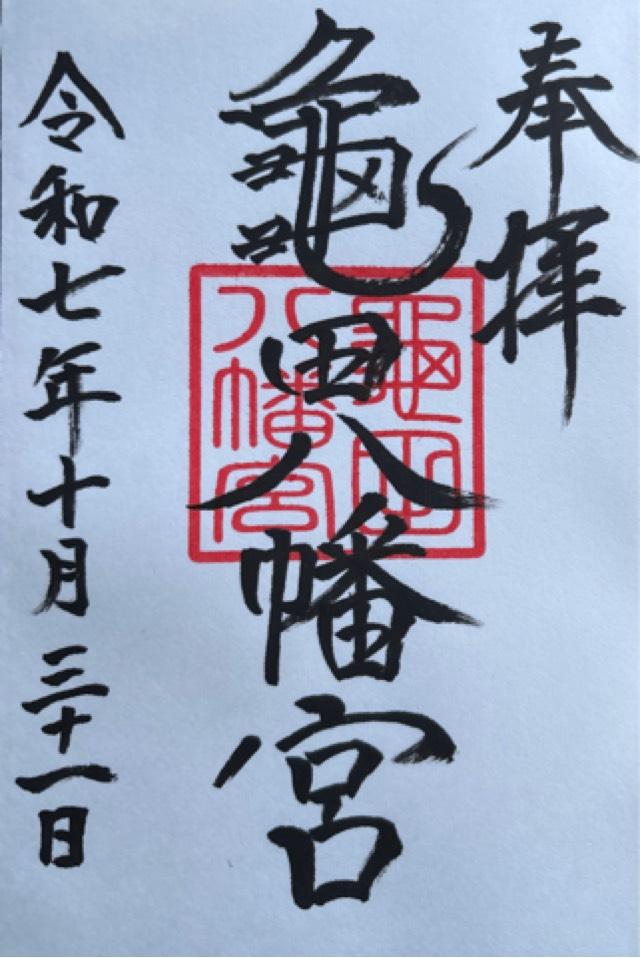 奉拝
龜田八幡宮
龜田
八幡宮
令和七年十月三十一日